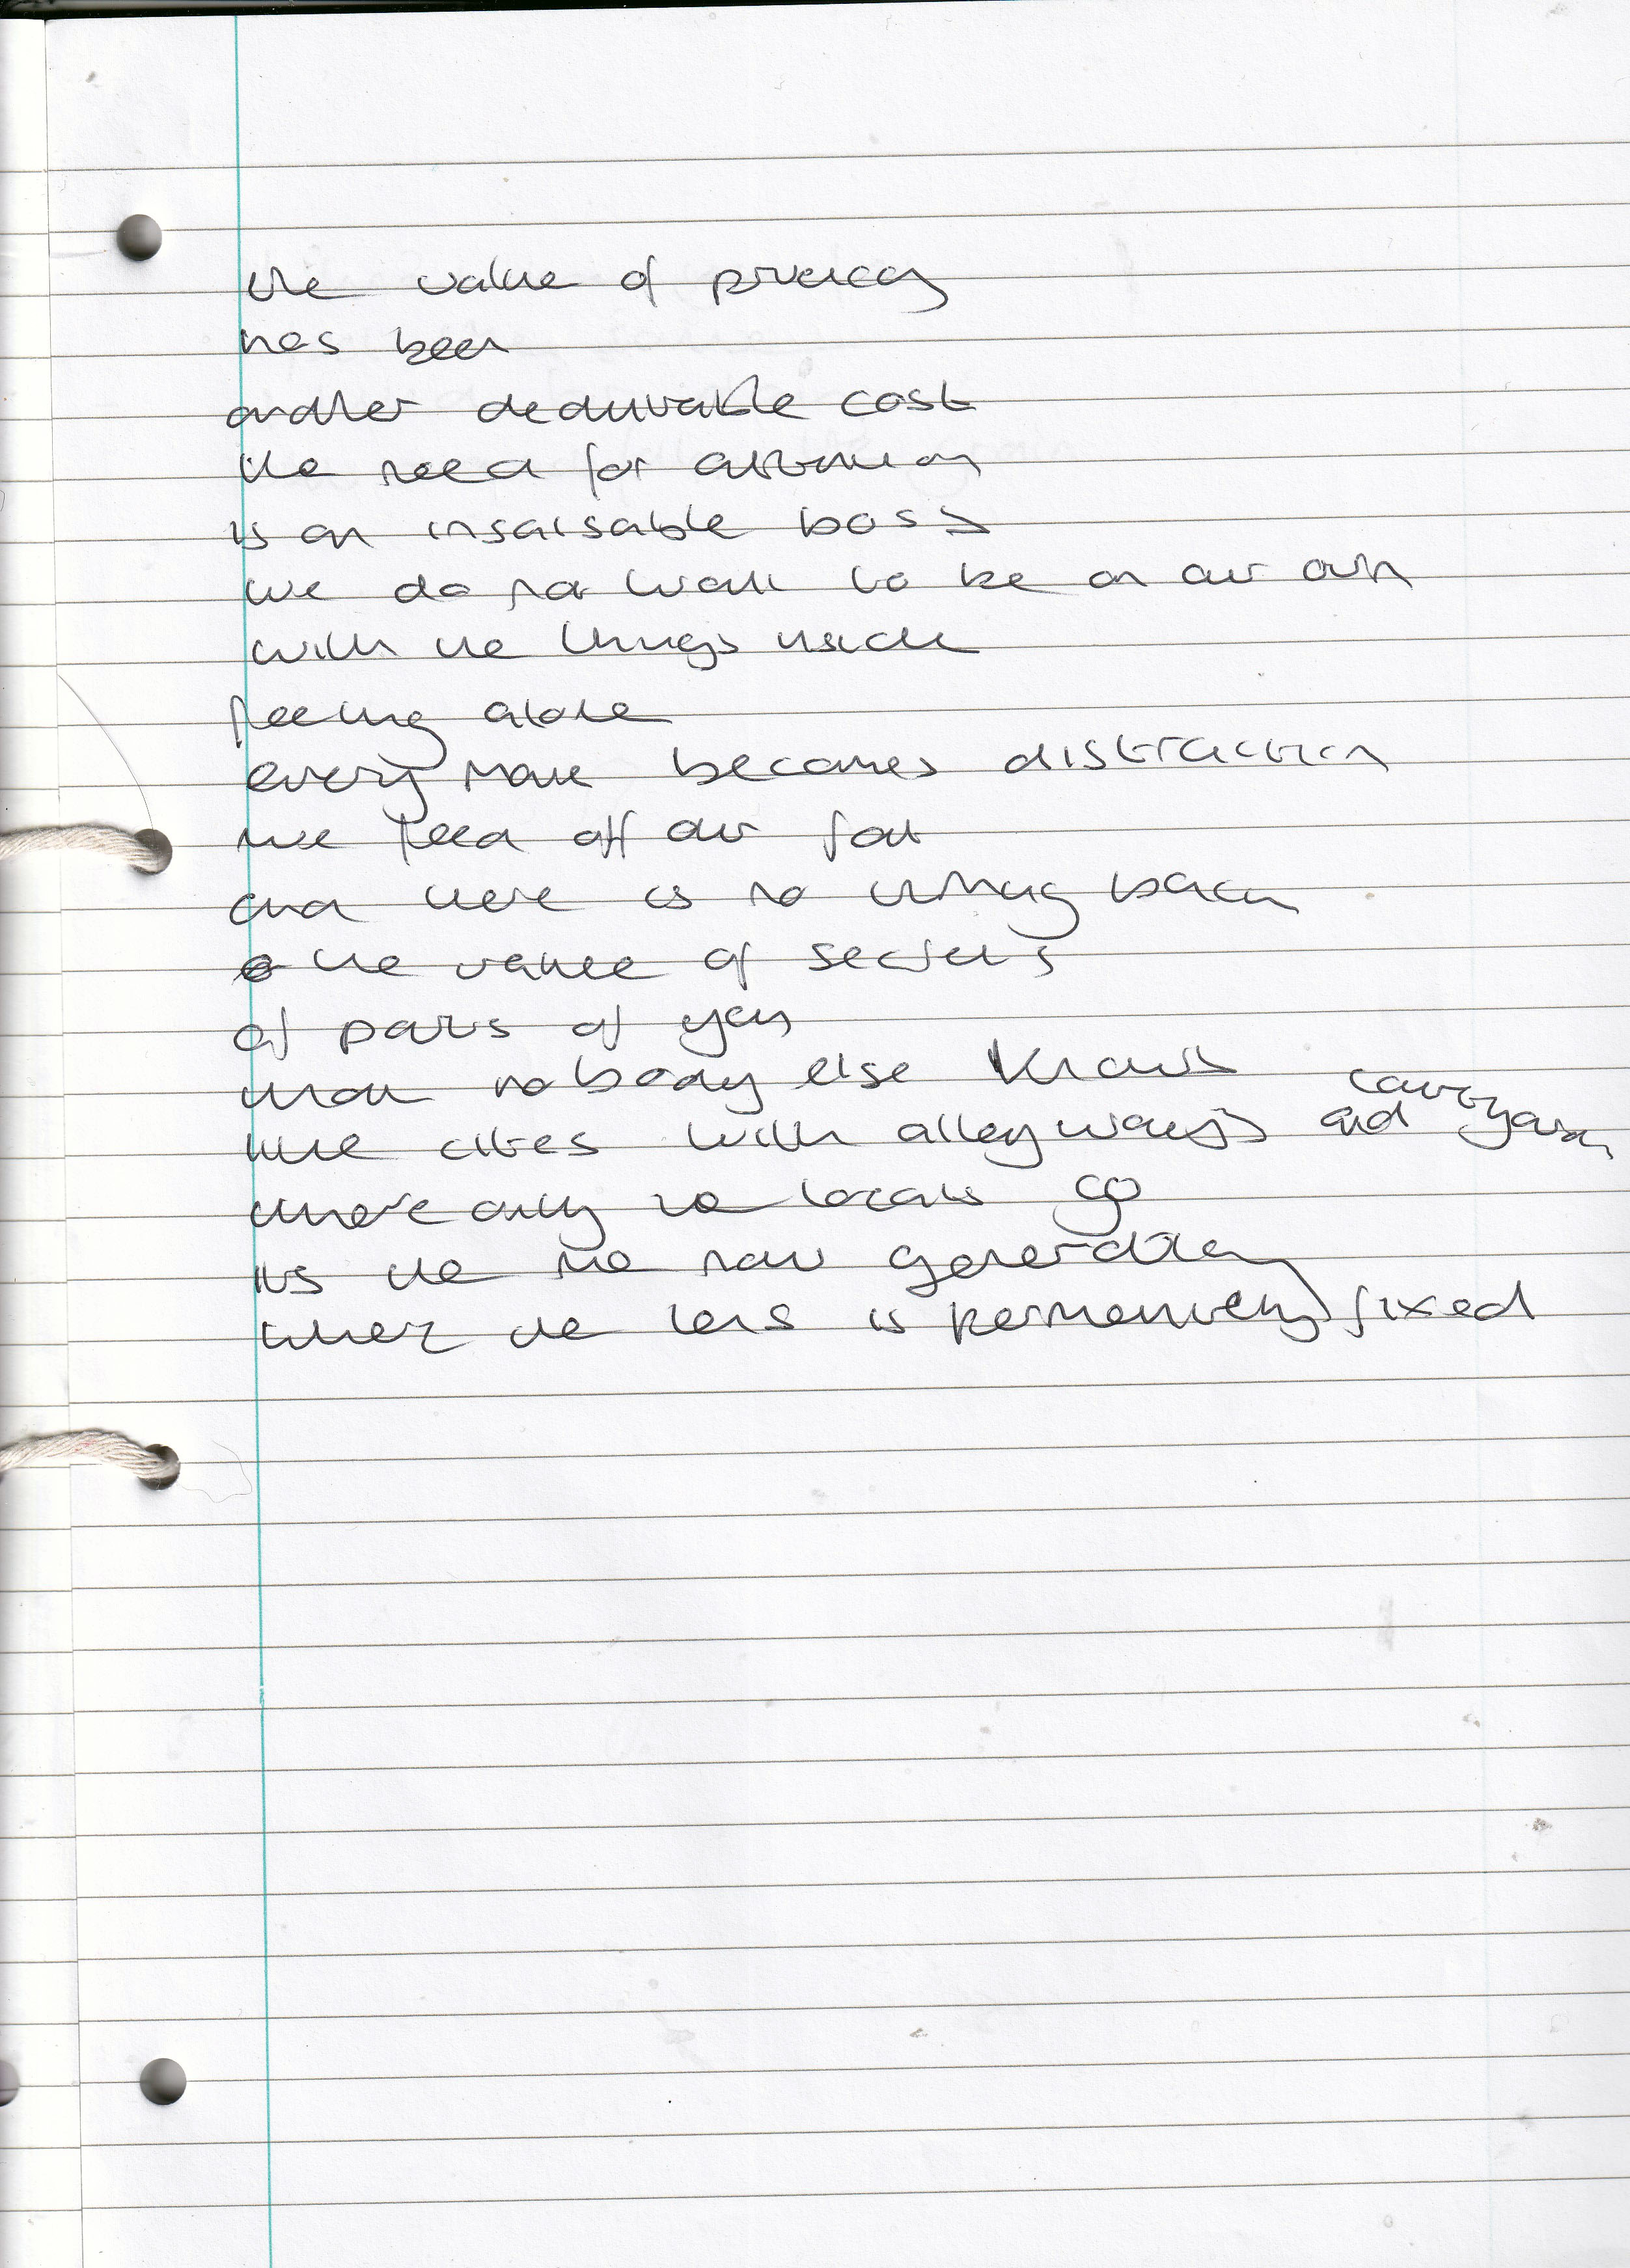 the value of privacy
has been
another deductable cost
the need for attention
is an insatsable boss
we do not want to be on our own
with the things inside
feeling alone
every move becomes distraction
we feed off our
and there is no back
the value of secrets
of parts of you
that nobody else knows
like cities with alleyways and courtyards
where only the locals go
its the the new generation
where the lens is permenently fixed